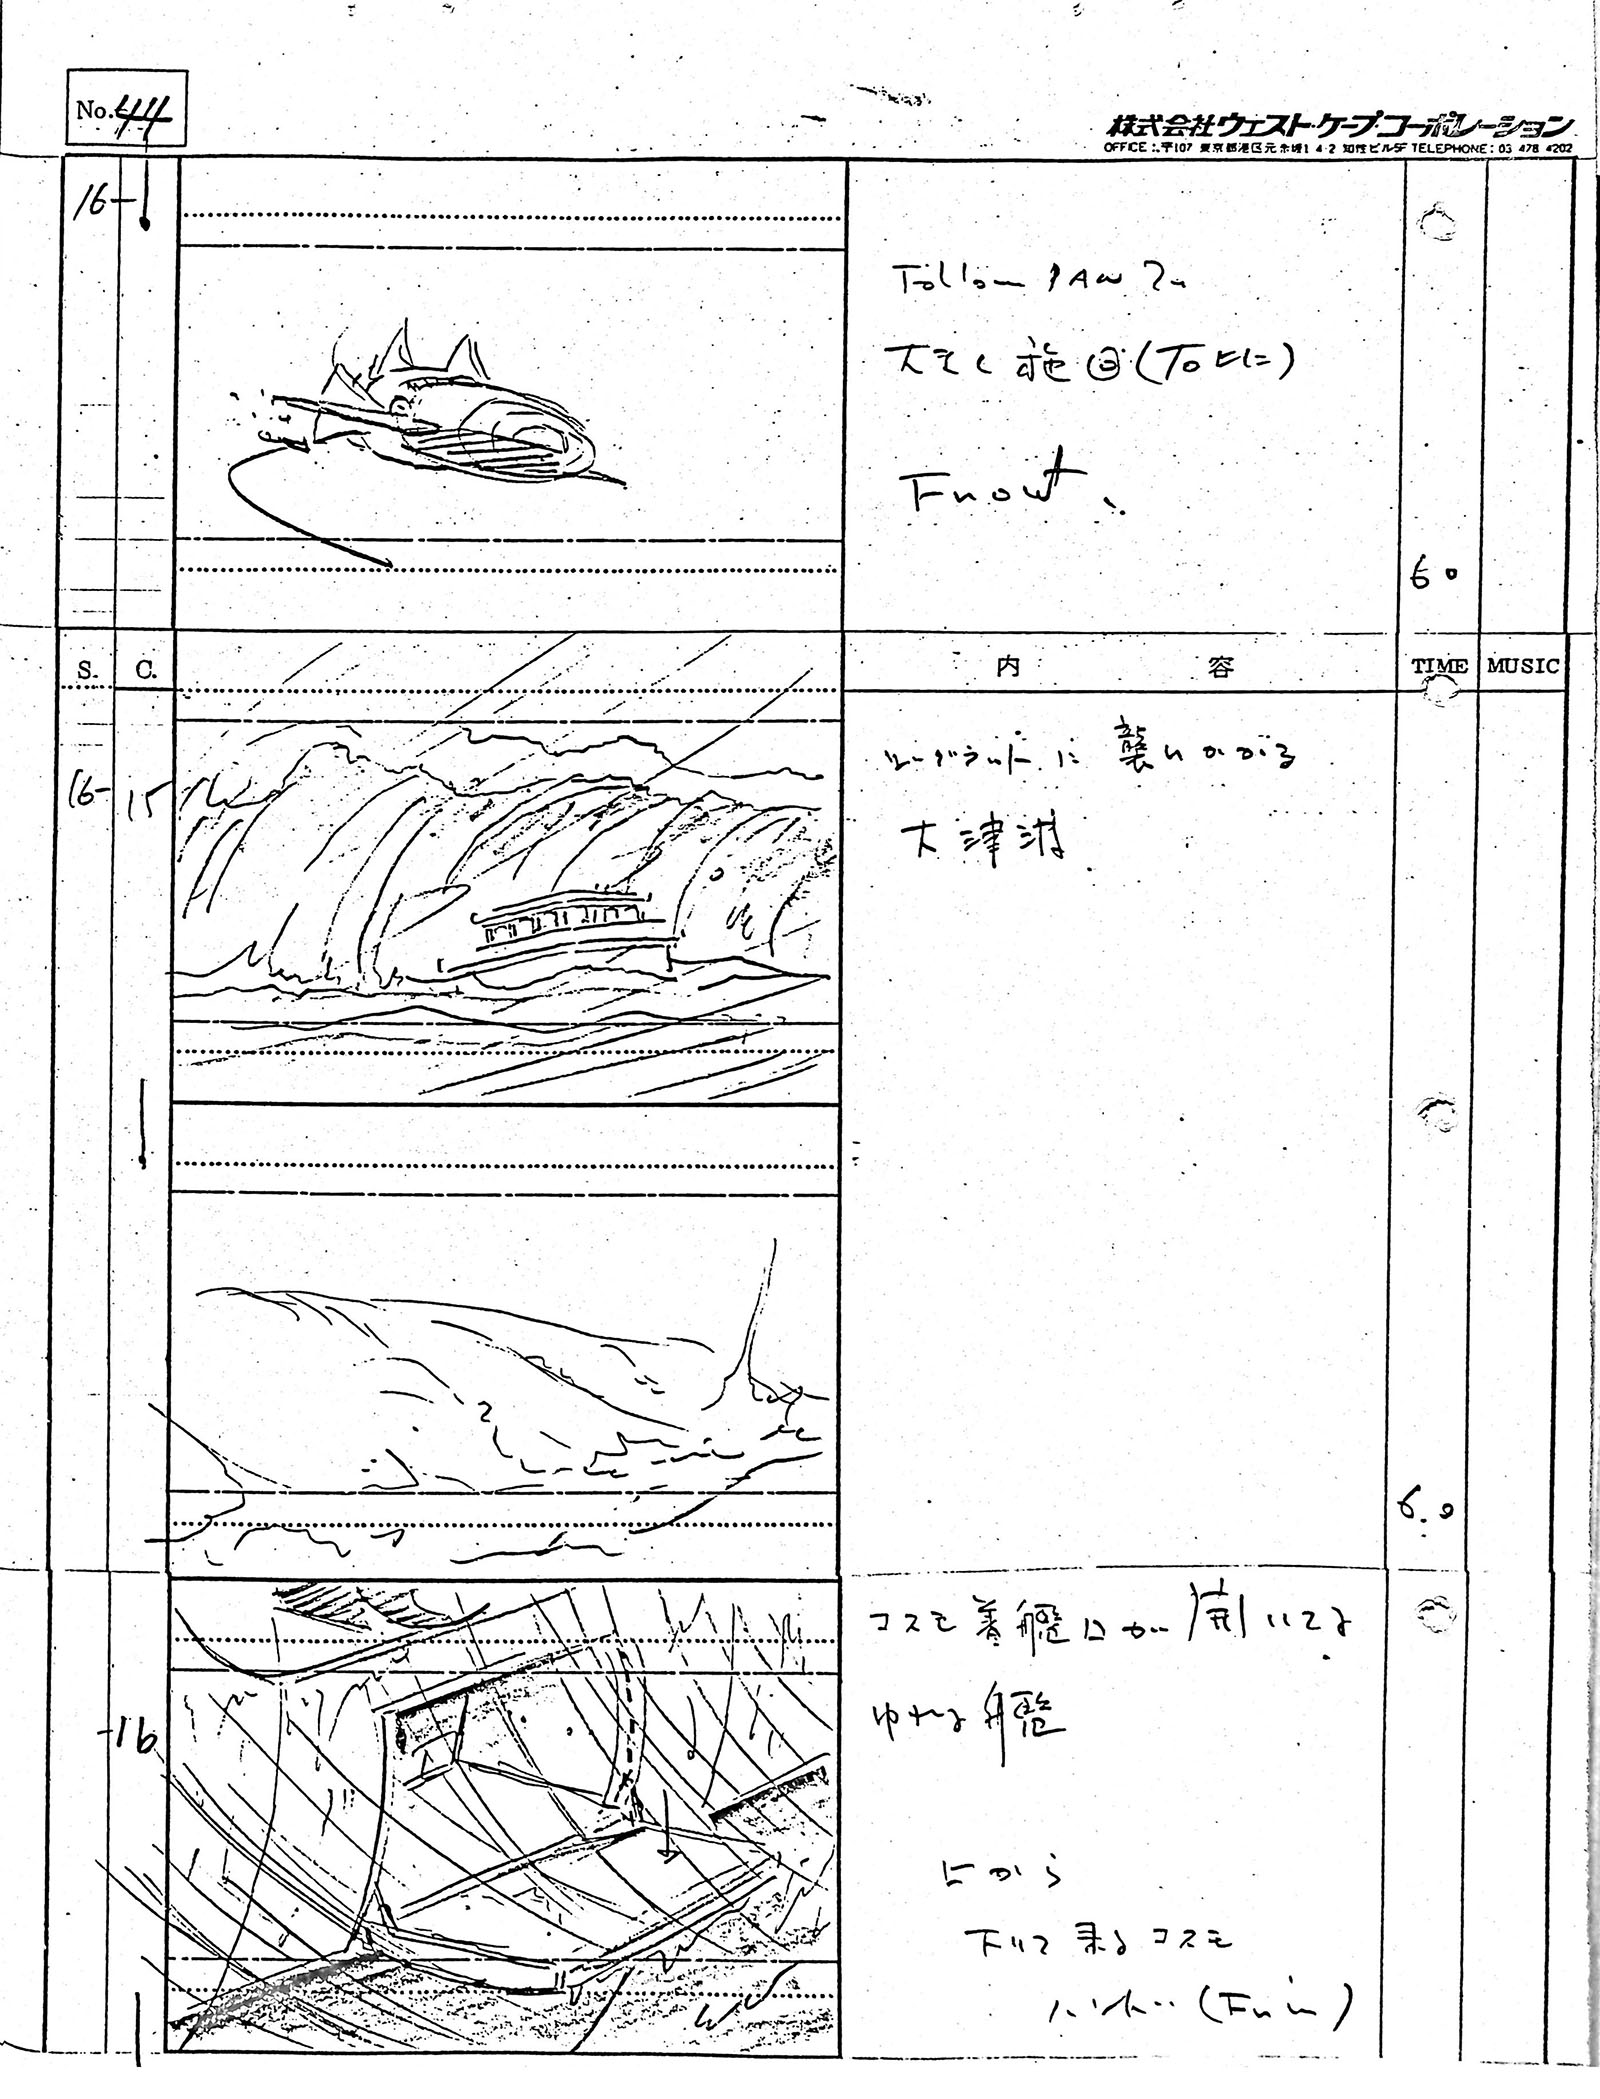 No.44
株式会社ウェスト・ケープ・コーポレーション
OFFICE: 〒107 東京都港区元赤坂1-4-2 知性ビル5F TELEPHONE: 03 478 4202
16-
Follow PAN
大きく旋回(TO
Fr out
60
S. C. 内 容 TIME MUSIC
16-15
に襲いかかる
大津波
6.0
-16
コスモ着艦口が開いてる
ゆれる艦
上から
下りて来るコスモ
(Fr in)